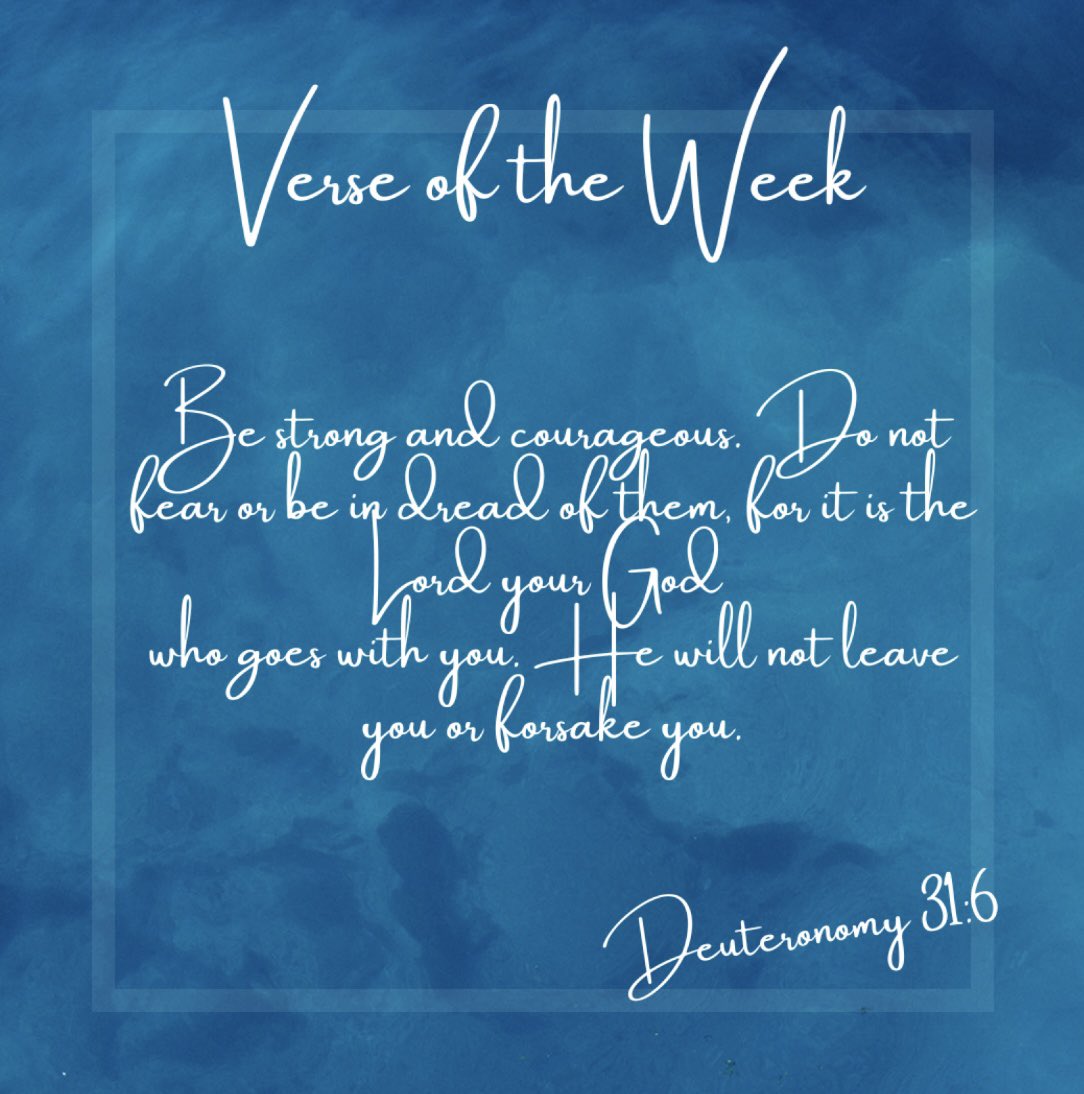 Verse of the Week
Be strong and courageous. Do not
fear or be in dread of them, for it is the
Lord your God
who goes with you. He will not leave
you or forsake you.
Deuteronomy 31:6